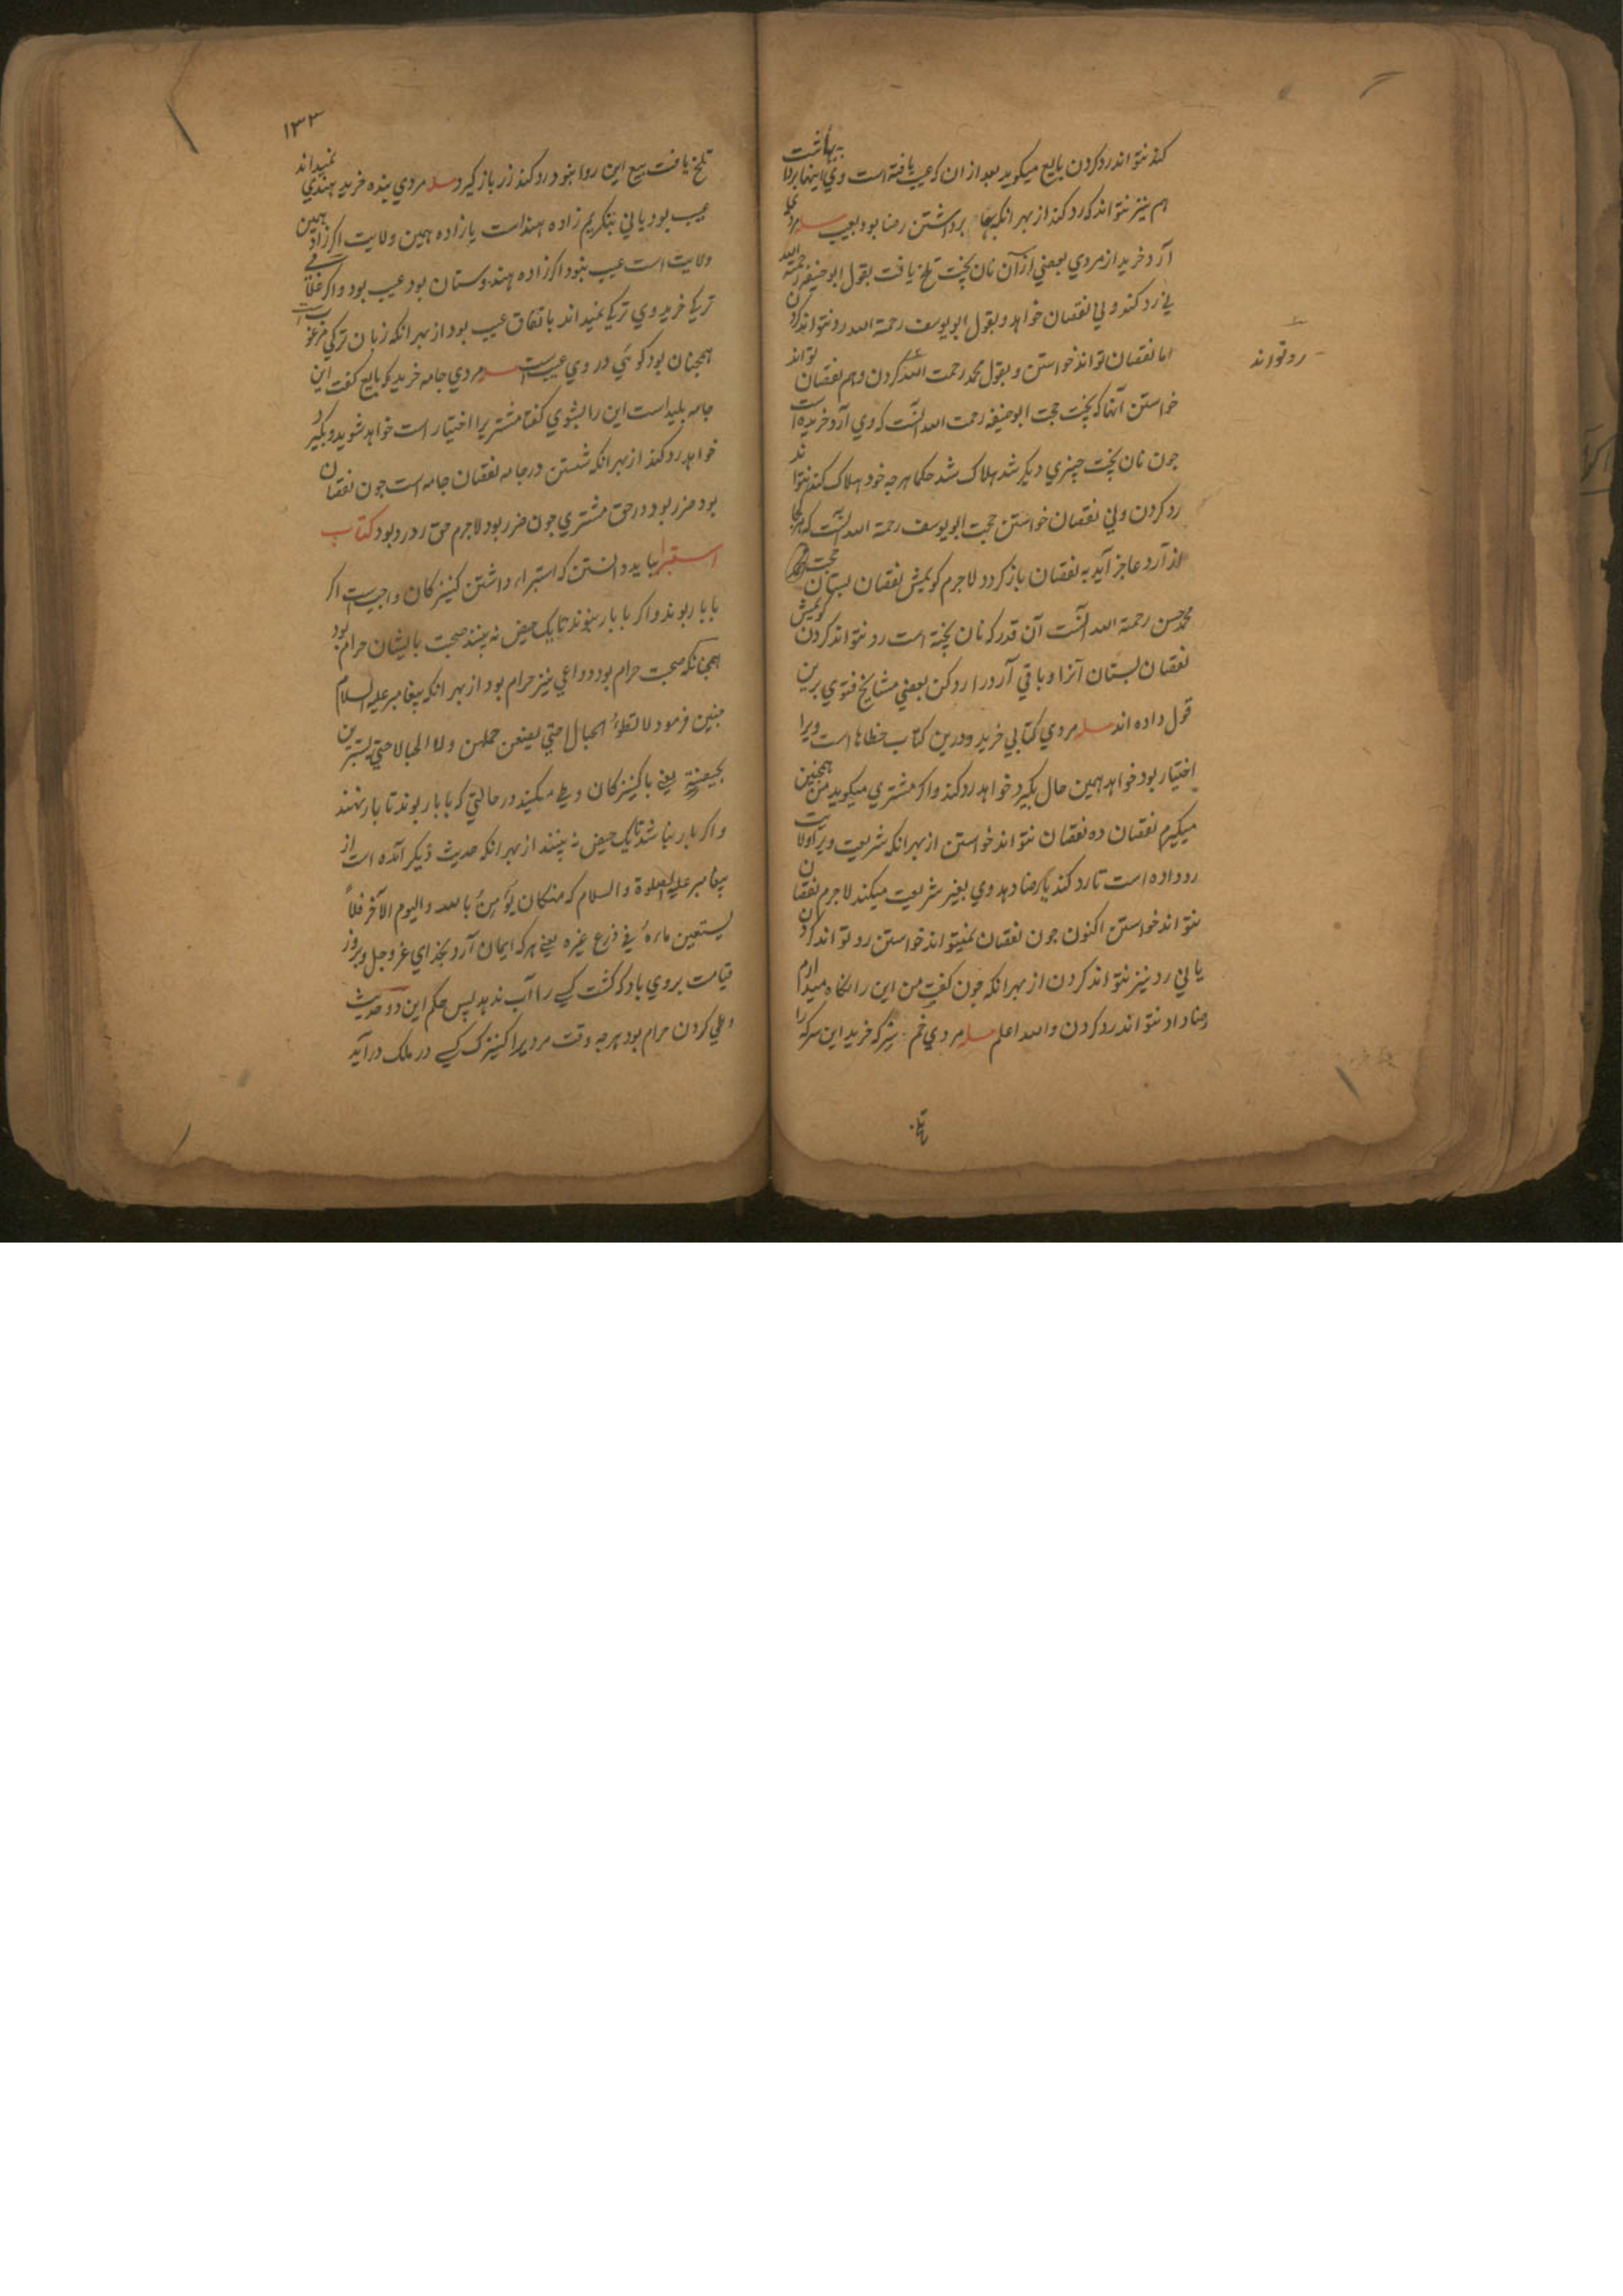 کند نتواند رد کردن بایع میکوید بعد از ان که عیب یافته است وی اینها بردا به بهاشت
هم نیز نتواند که رد کند از بهر انکه بها برداشتن رضا بود بعیب مسله مردی
آرد خرید از مردی بعضی از آن نان پخت تلخ یافت بقول ابو حنیفه رحمة الله
نی رد کند و نی نقصان خواهد و بقول ابو یوسف رحمة الله رد نتواند کردن
اما نقصان تواند خواستن و بقول محمد رحمت الله کردن وهم نقصان تواند
رد تواند
خواستن آنها که پخت حجت ابو حنیفه رحمت الله آنست که وی آرد خریده است
چون نان پخت چیزی دیکر شد هلاک شد حکما هرچه خود هلاک کند نتواند
رد کردن و نی نقصان خواستن حجت ابو یوسف رحمة الله آنست که هرکجا
از آرد عاجز آید به نقصان باز کردد لاجرم کویمش نقصان بستان حجت
محمد حسن رحمة الله آنست آن قدر که نان پخته است رد نتواند کردن کویمش
نقصان بستان آنرا و باقی آرد را رد کن بعضی مشایخ فتوی برین
قول داده اند مسله مردی کتابی خرید و درین کتاب خطاها است ویرا
اختیار بود خواهد همین حال بکیرد خواهد رد کند واکر مشتری میکوید من همچنین
میکیرم نقصان ده نقصان نتواند خواستن از بهر انکه شریعت ویرا ولایت
رد داده است تا رد کند یا رضا دهد وی بغیر شریعت میکند لاجرم نقصان
نتواند خواستن اکنون چون نقصان نمیتواند خواستن رد تواند کردن
یا نی رد نیز نتواند کردن از بهر انکه چون کفت من این را نکاه میدارم
رضا داد نتواند رد کردن والله اعلم مسله مردی خم سرکه خرید این سرکه را
تلخ
۱۳۳
تلخ یافت بیع این روا نبود رد کند زر باز کیرد مسله مردی بنده خرید هندی نمیداند
عیب بود یا نی بنکریم زاده هند است یا زاده همین ولایت اکر زاد همین
ولایت است عیب نبود اکر زاده هندوستان بود عیب بود واکر غلامی
ترکی خرید وی ترکی نمیداند باتفاق عیب بود از بهر انکه زبان ترکی مرغوبست
همچنان بود کوئی در وی عیب است مسله مردی جامه خرید کو بایع کفت این
جامه پلید است این را بشوی کفتا مشتریرا اختیار است خواهد شوید و بکیرد
خواهد رد کند از بهر انکه شستن در جامه نقصان جامه است چون نقصان
بود ضرر بود در حق مشتری چون ضرر بود لاجرم حق رد رد بود کتاب
استبرا بباید دانستن که استبراء داشتن کنیزکان واجب است اکر
با بار بوند واکر با بار نبوند تا یک حیض نه بینند صحبت با ایشان حرام بود
همچنانکه صحبت حرام بود دواعی نیز حرام بود از بهر انکه پیغامبر علیه السلام
چنین فرمود لا تقطؤ الحبال حتی یضعن حملهن ولا الحبالا حتی یستبرین
بحیضة یعنی با کنیزکان وطی مکنید در حالتی که با بار بوند تا بار ننهند
واکر بار نباشد تا یک حیض نه بینند از بهر انکه حدیث دیکر آمده است از
پیغامبر علیه الصلوة والسلام که من کان یؤمن بالله والیوم الآخر فلا
یستعین ماءه فی ذرع غیره یعنی هرکه ایمان آرد بخدای عز وجل و بروز
قیامت بروی باد که کشت کسی را آب ندهد پس حکم این دو حدیث
وطی کردن حرام بود هرچه وقت مردیرا کنیزک کسی در ملک درآید